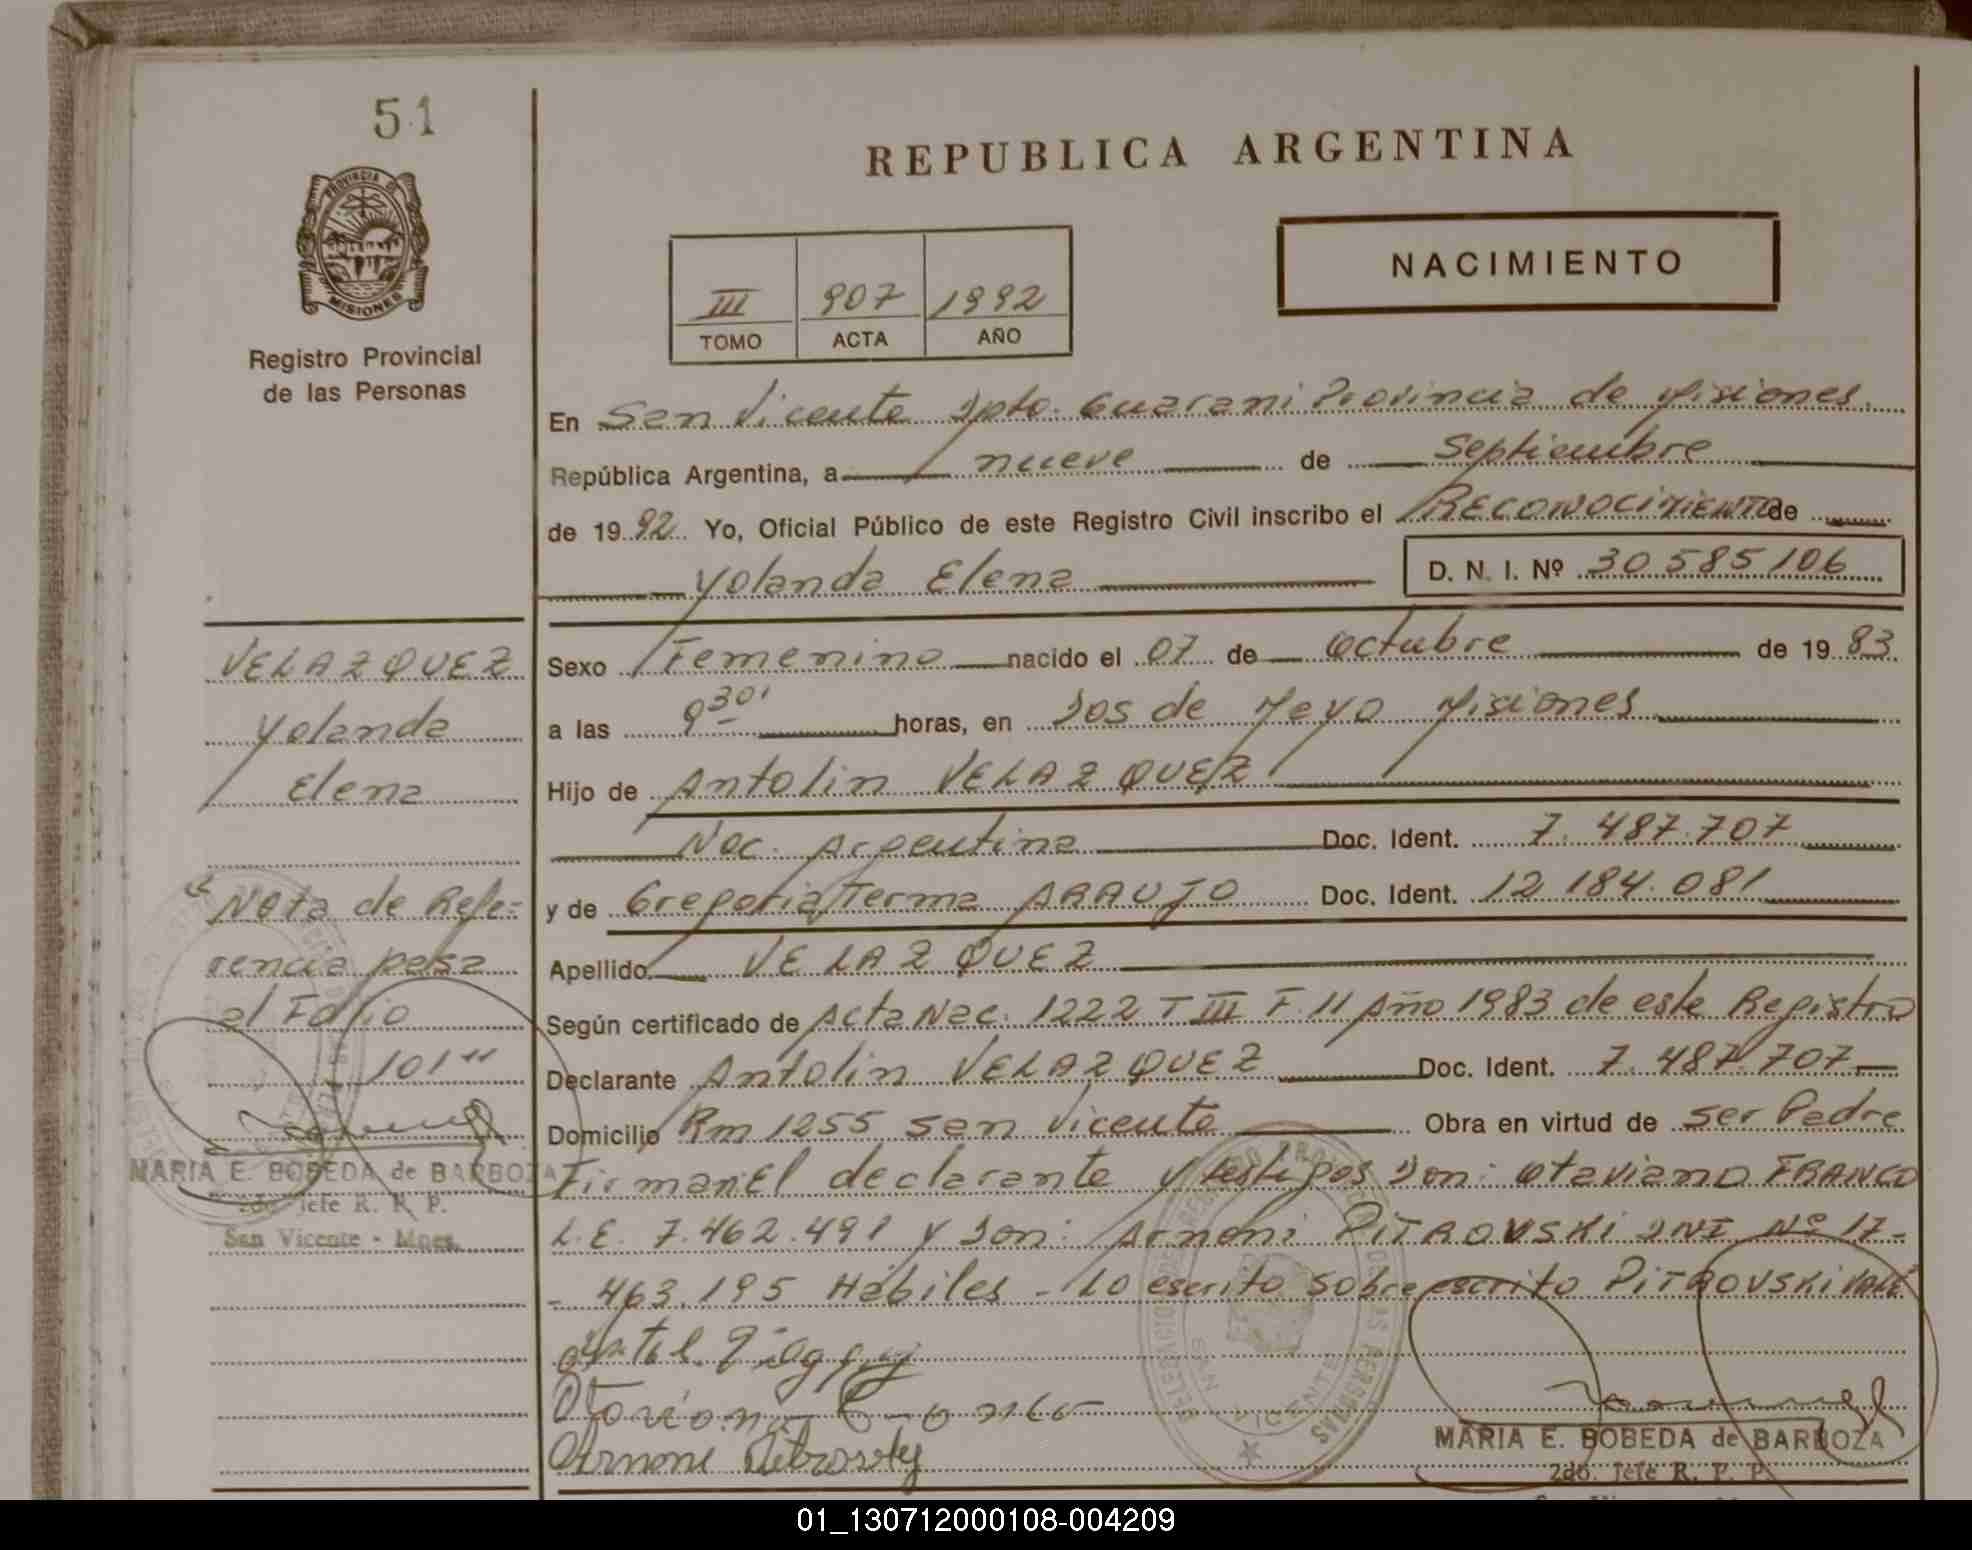 51
REPUBLICA ARGENTINA
PROVINCIA DE
MISIONES
NACIMIENTO
III 907 1992
TOMO ACTA AÑO
Registro Provincial
de las Personas
En San Vicente Dpto. Guarani Provincia de Misiones
República Argentina, a nueve de Septiembre
de 1992 Yo, Oficial Público de este Registro Civil inscribo el RECONOCIMIENTO de
Yolanda Elena D. N. I. Nº 30585106
VELAZQUEZ
Yolanda
Elena
Sexo Femenino nacido el 07 de Octubre de 1983
a las 9 30' horas, en Dos de Mayo Misiones
Hijo de Antolin VELAZQUEZ
Nac. Argentina Doc. Ident. 7.487.707
y de Gregoria Terma ARAUJO Doc. Ident. 12.184.081
Apellido VELAZQUEZ
Según certificado de Acta Nac. 1222 T III F. 11 Año 1983 de este Registro
Declarante Antolin VELAZQUEZ Doc. Ident. 7.487.707
Domicilio Rm 1255 San Vicente Obra en virtud de ser Padre
Firman El declarante y testigos Don: Otaviano FRANCO
L.E. 7.462.491 y Don: Arnoni PITROVSKI DNI Nº 17-
- 463.195 Habiles - Lo escrito sobre escrito PITROVSKI Vale
Nota de Refe-
rencia pasa
al Folio
101"
MARIA E. BOBEDA de BARBOZA
2do. Jefe R. P. P.
San Vicente - Mnes.
SAN VICENTE
MARIA E. BOBEDA de BARBOZA
2do. Jefe R. P. P.
01_130712000108-004209